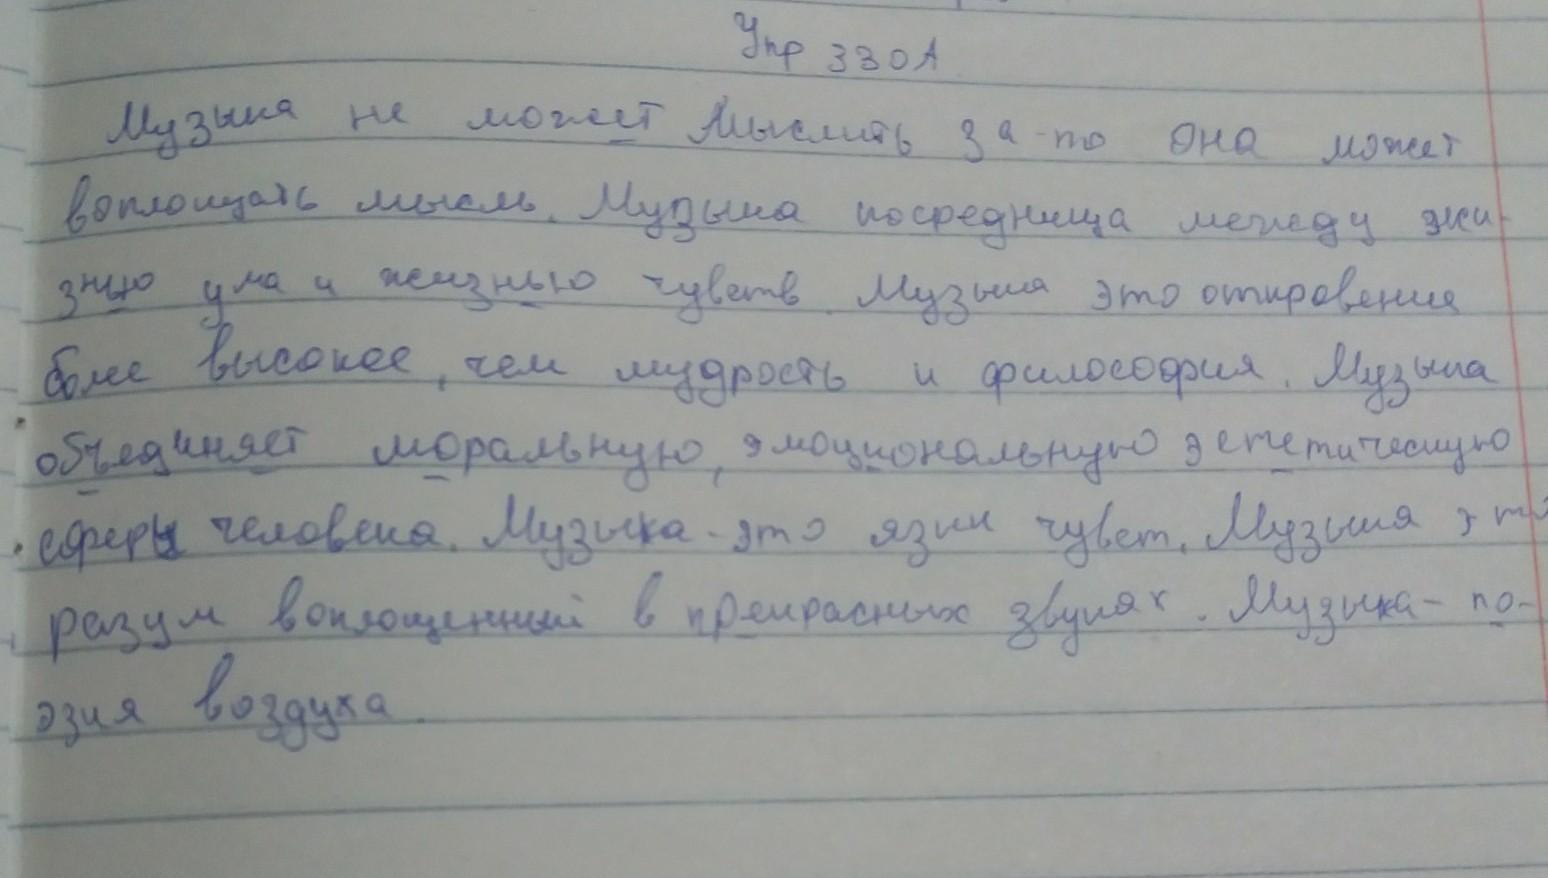 Упр 330А
Музыка не может мыслить за-то она может
воплощать мысль. Музыка посредница между жи-
знью ума и жизнью чувств. Музыка это откровения
более высокое, чем мудрость и философия. Музыка
объединяет моральную, эмоциональную эстетическую
сферы человека. Музыка-это язик чувст. Музыка это
разум воплощенный в прекрасных звуках. Музыка- по-
эзия воздуха.